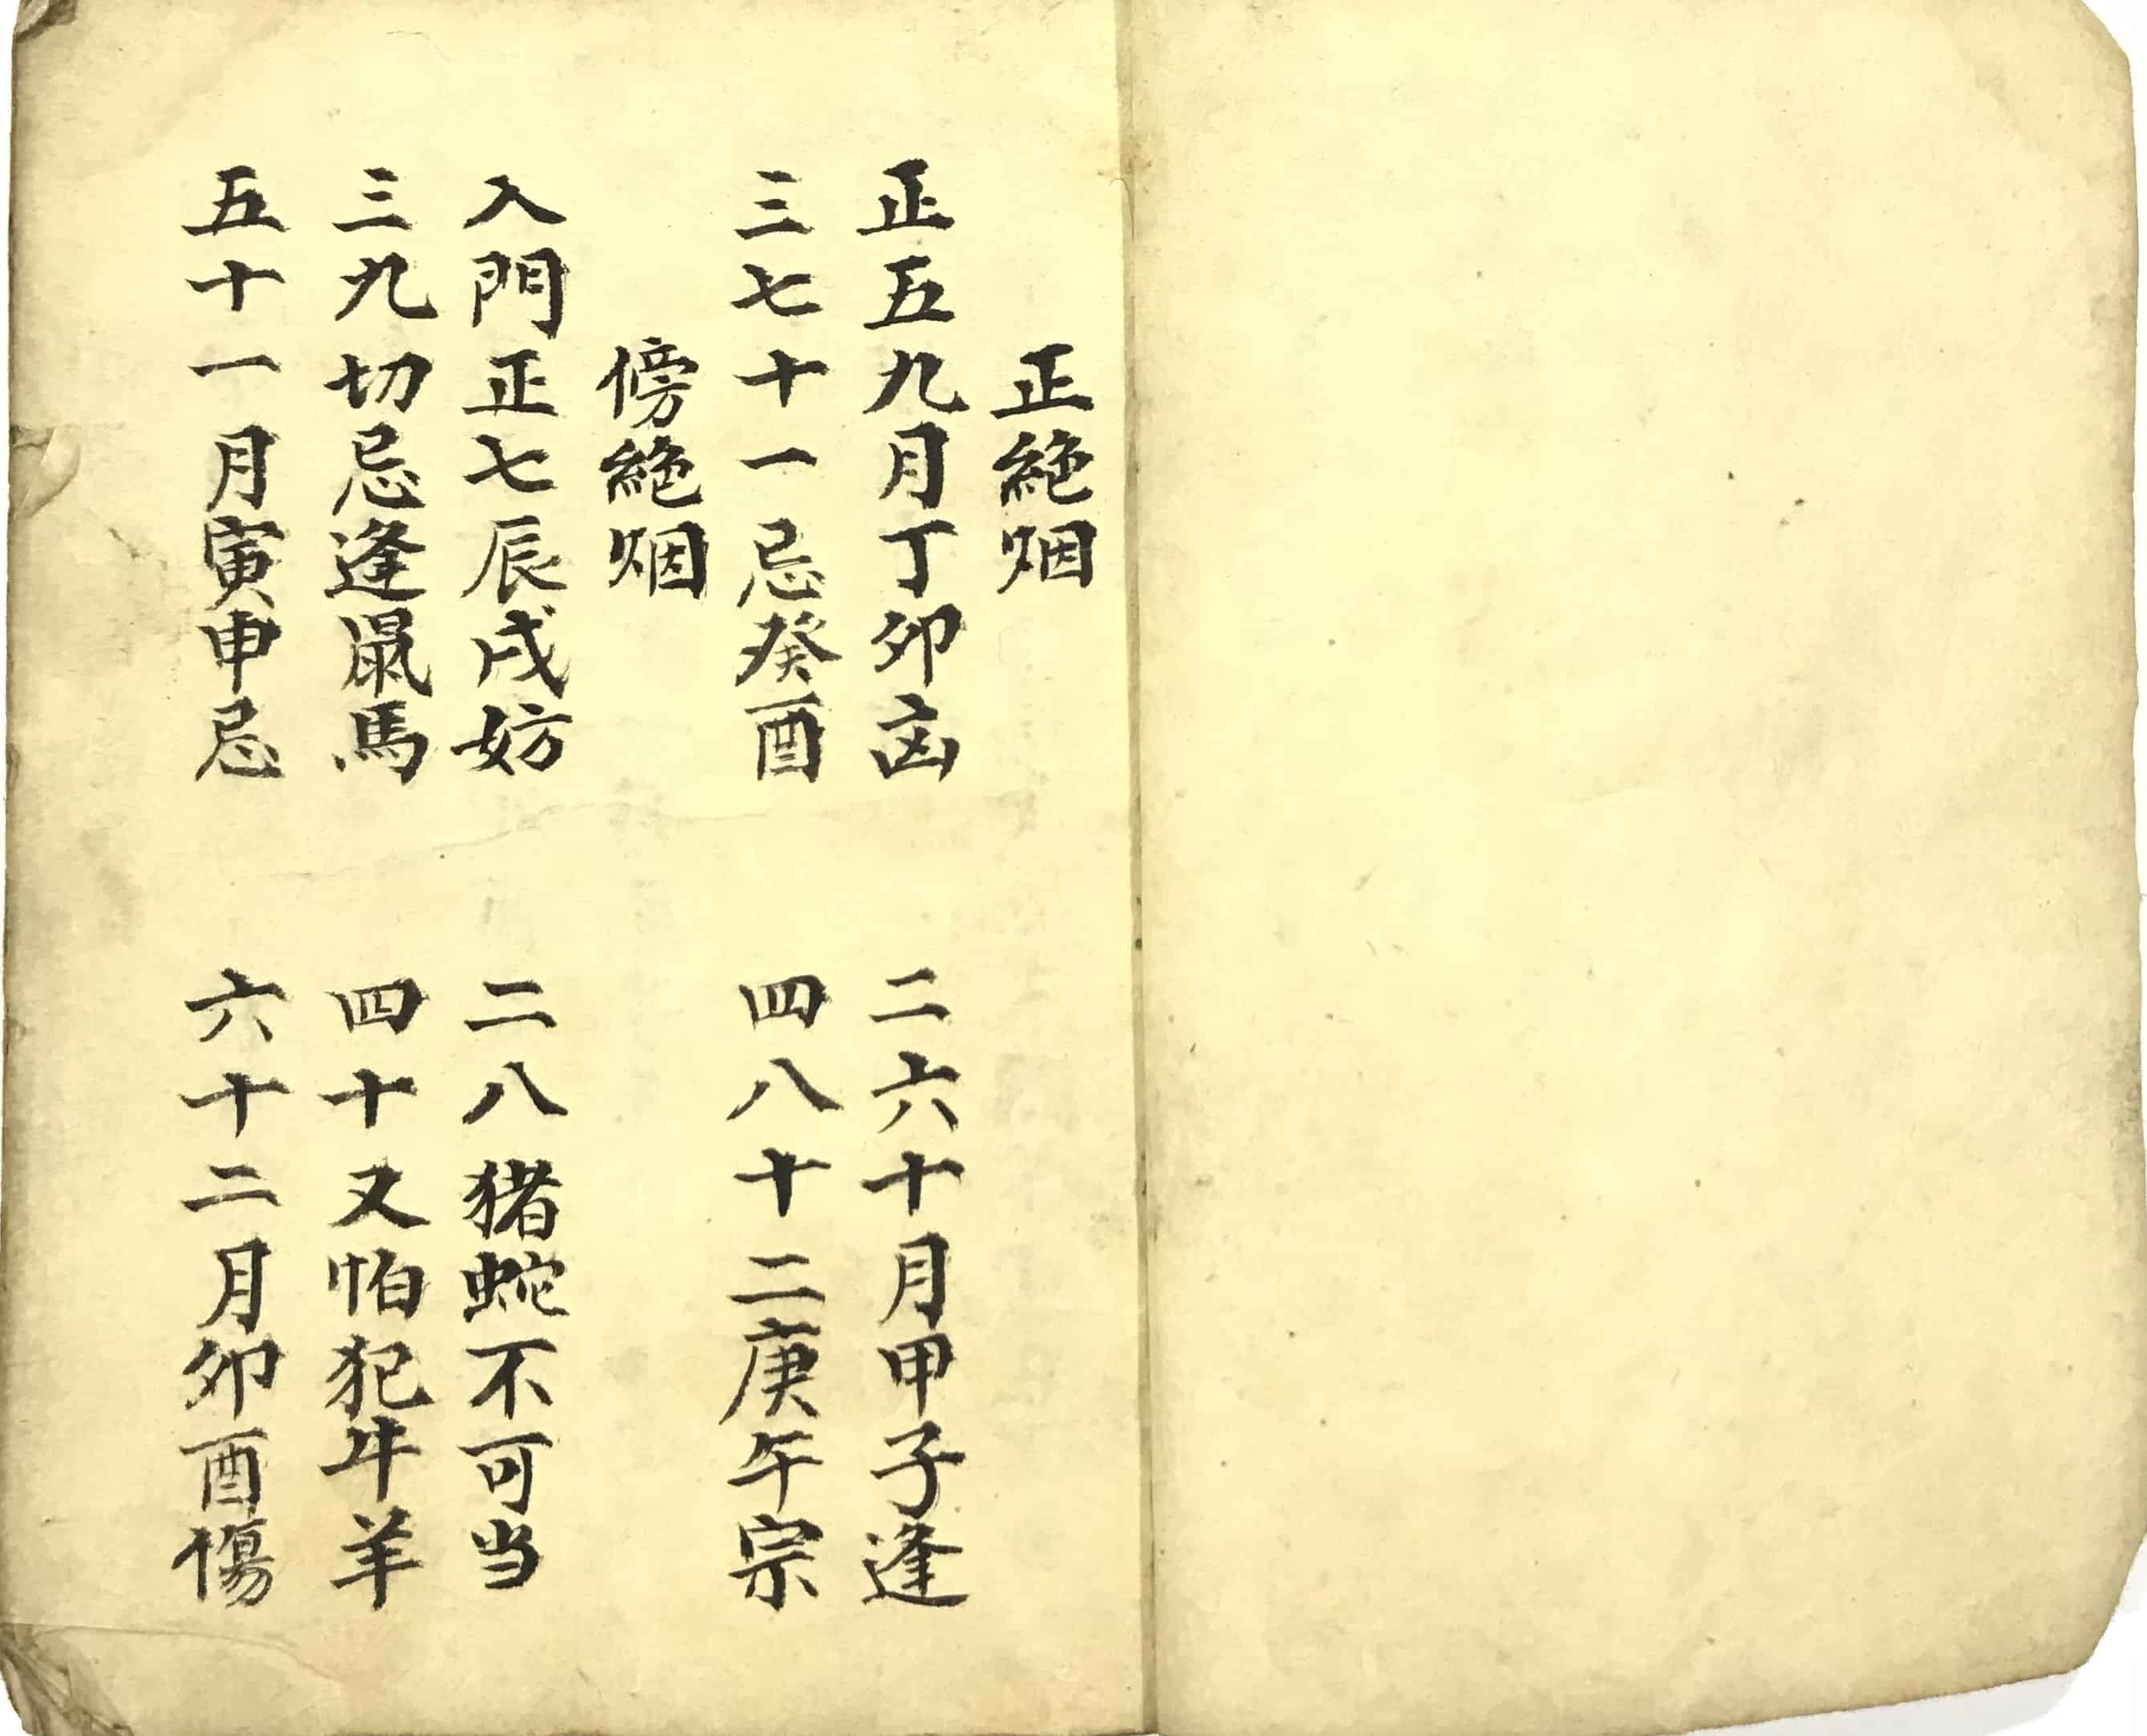 正絕烟
正五九月丁卯凶
二六十月甲子逢
三七十一忌癸酉
四八十二庚午宗
傍絕烟
入門正七辰戌妨
二八猪蛇不可当
三九切忌逢鼠馬
四十又怕犯牛羊
五十一月寅申忌
六十二月卯酉傷